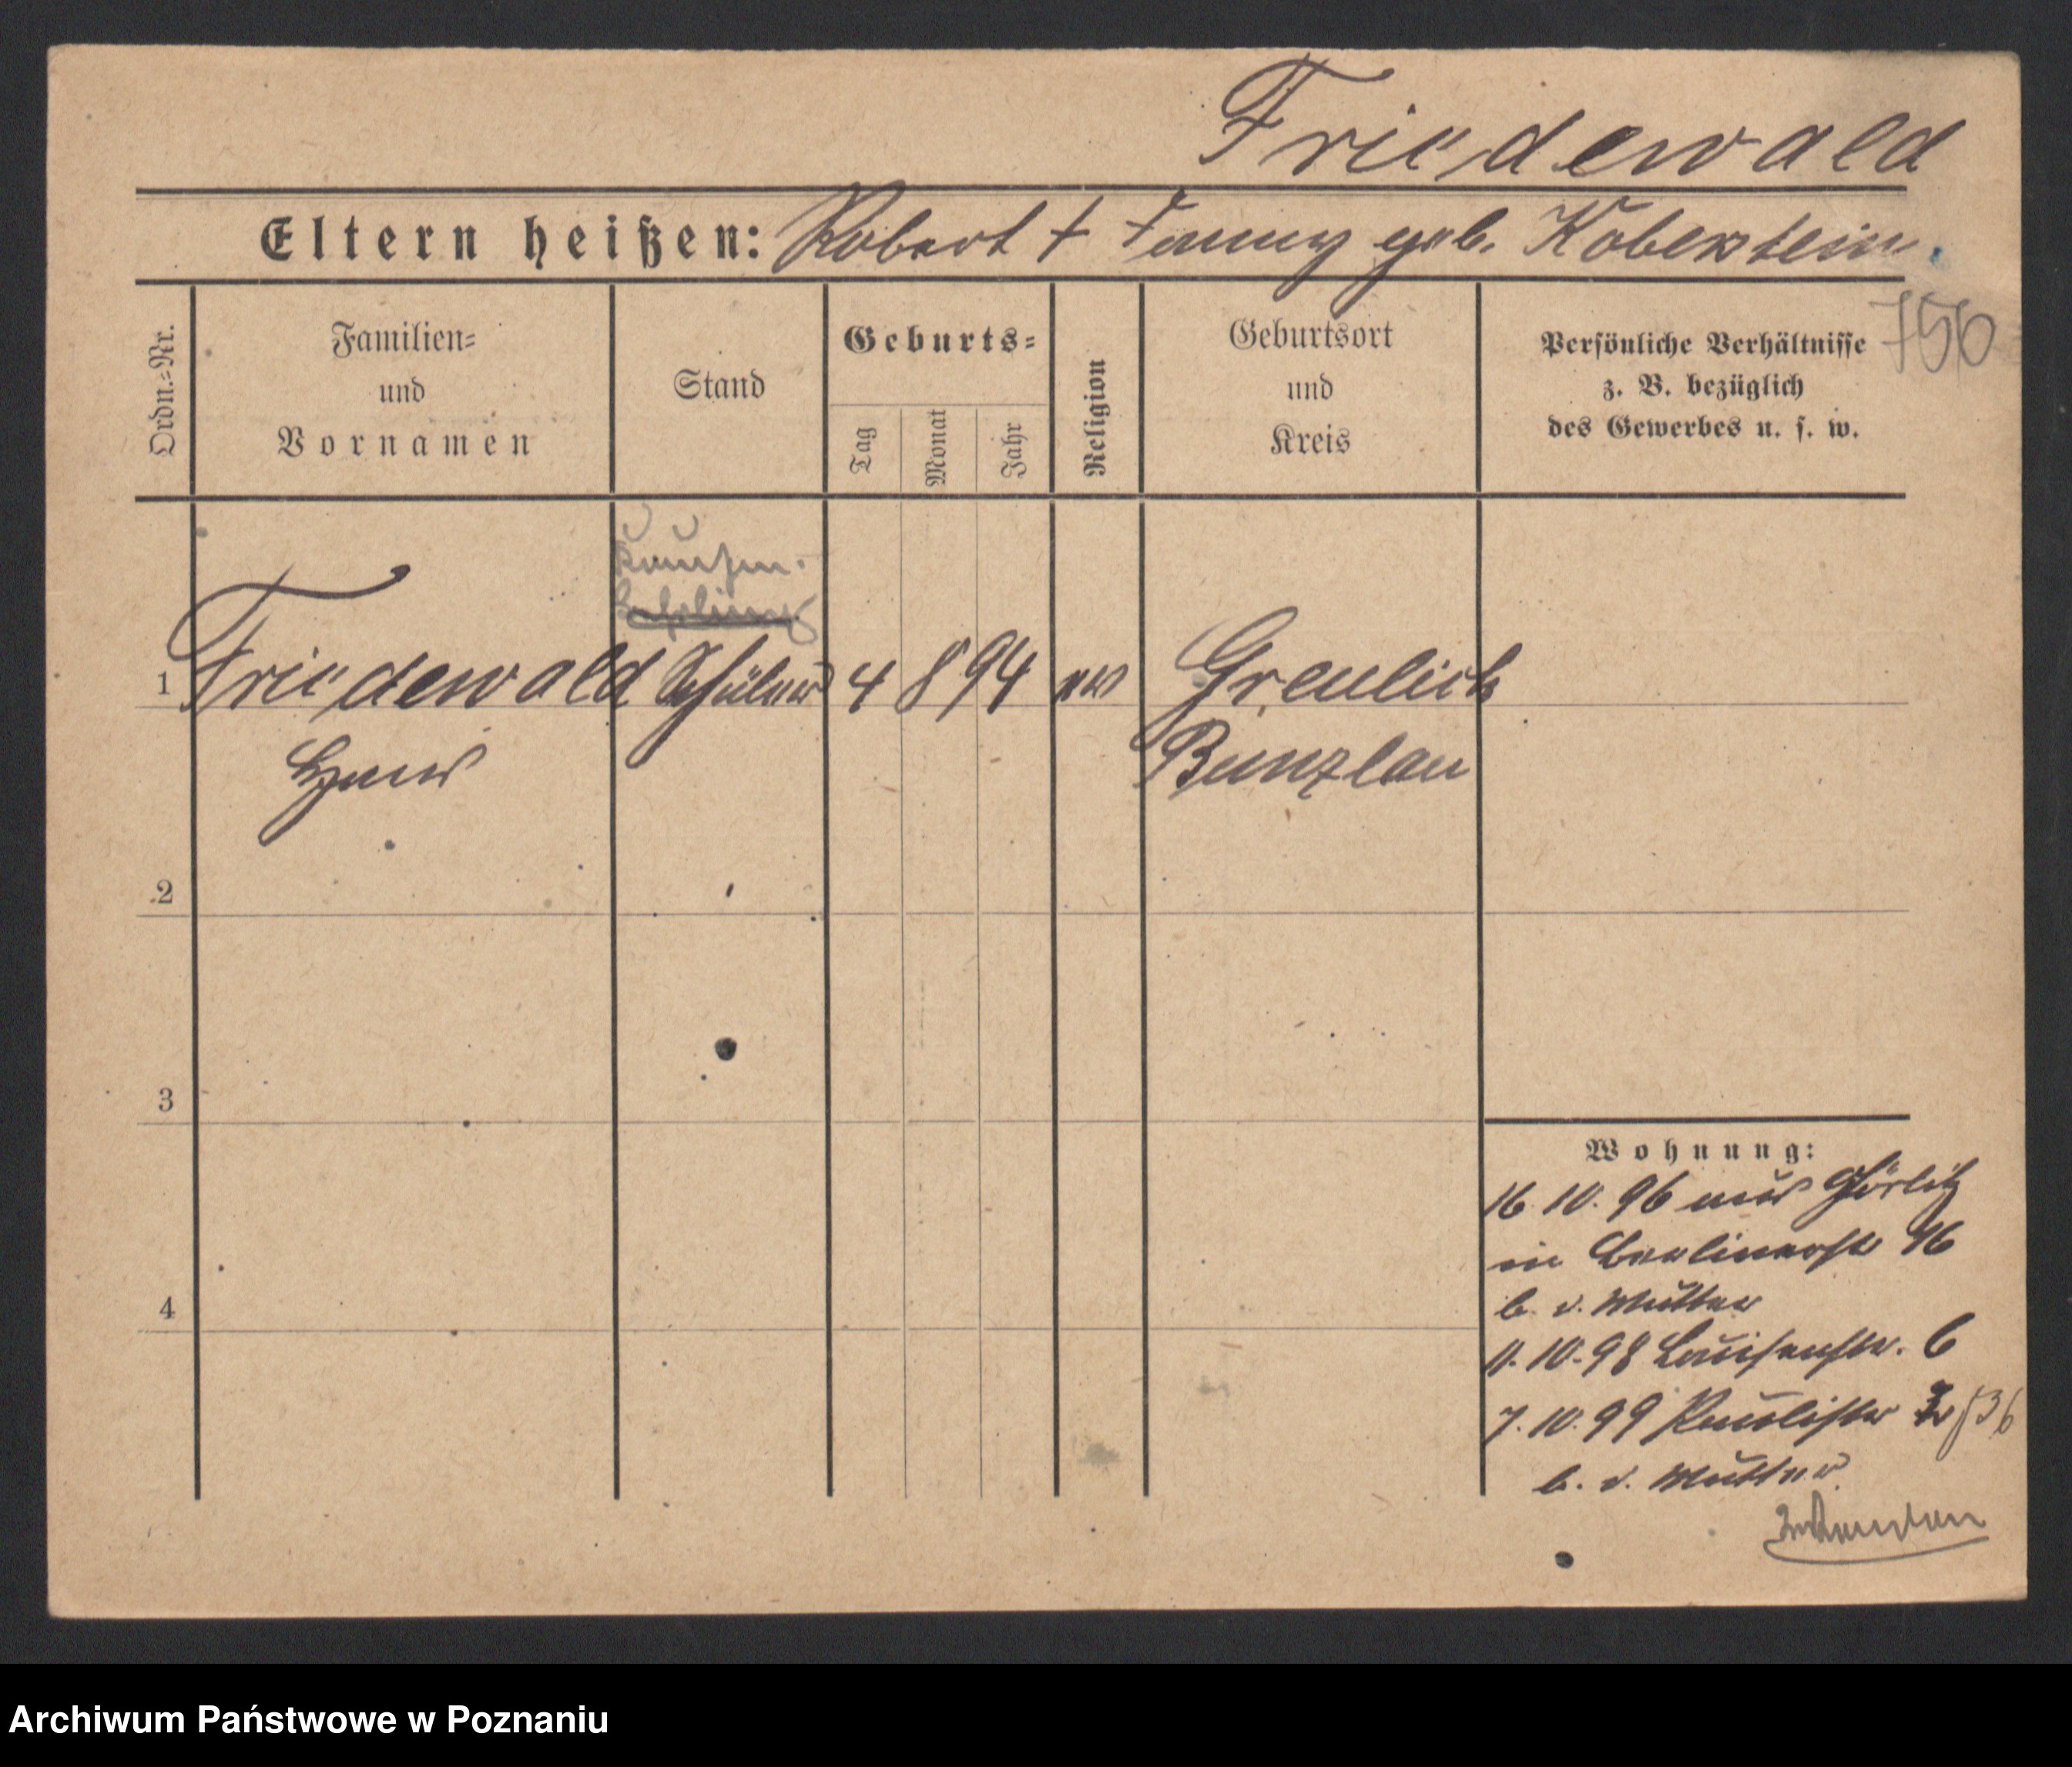 Friedewald
Eltern heißen: Robert † Fanny geb. Koberstein.
756
Ordn.-Nr.
Familien-
und
Vornamen
Stand
Geburts-
Tag
Monat
Jahr
Religion
Geburtsort
und
Kreis
Persönliche Verhältnisse
z. B. bezüglich
des Gewerbes u. s. w.
1 Friedewald Schüler 4 8 94 ev Greulich
Hans Bunzlau
2
3
4
Wohnung:
16 10. 96 aus Görlitz
in Berlinerstr 16
b. d. Mutter
11. 10. 98 Louisenstr. 6
7. 10. 99 Paulistr 36
b. d. Mutter
Archiwum Państwowe w Poznaniu